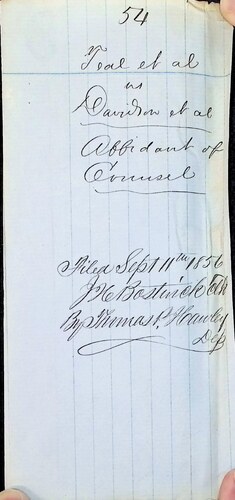 54
Teal et al
vs
Davidson et al
Affidavit of
Counsel
Filed Sept 11th 1856
J H Bostwick Clk
By Thomas P. Hawley
Dep